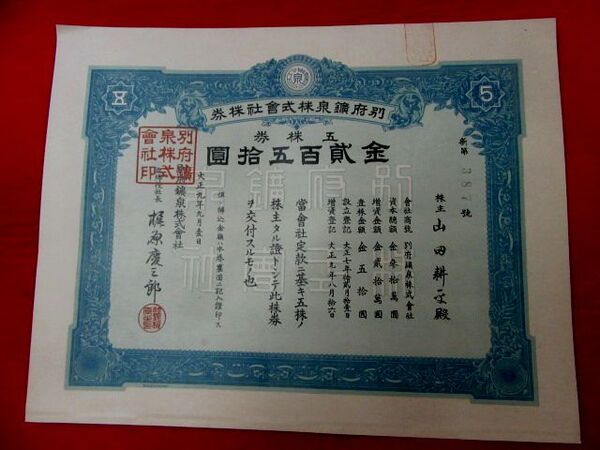 別府鑛泉株式會社株券
五株券
金貳百五拾圓
新第384號
株主 山田耕平殿
會社商號 別府鑛泉株式會社
資本總額 金參拾萬圓
增資金額 金貳拾萬圓
壹株金額 金五拾圓
設立登記 大正七年拾貳月拾壹日
增資登記 大正九年八月拾六日
當會社定款ニ基キ五株ノ
株主タル證トシテ此株券
ヲ交付スルモノ也
大正九年九月壹日
別府鑛泉株式會社
社長 梶原廣三郎
別府鑛泉株式會社印
5
五
泉